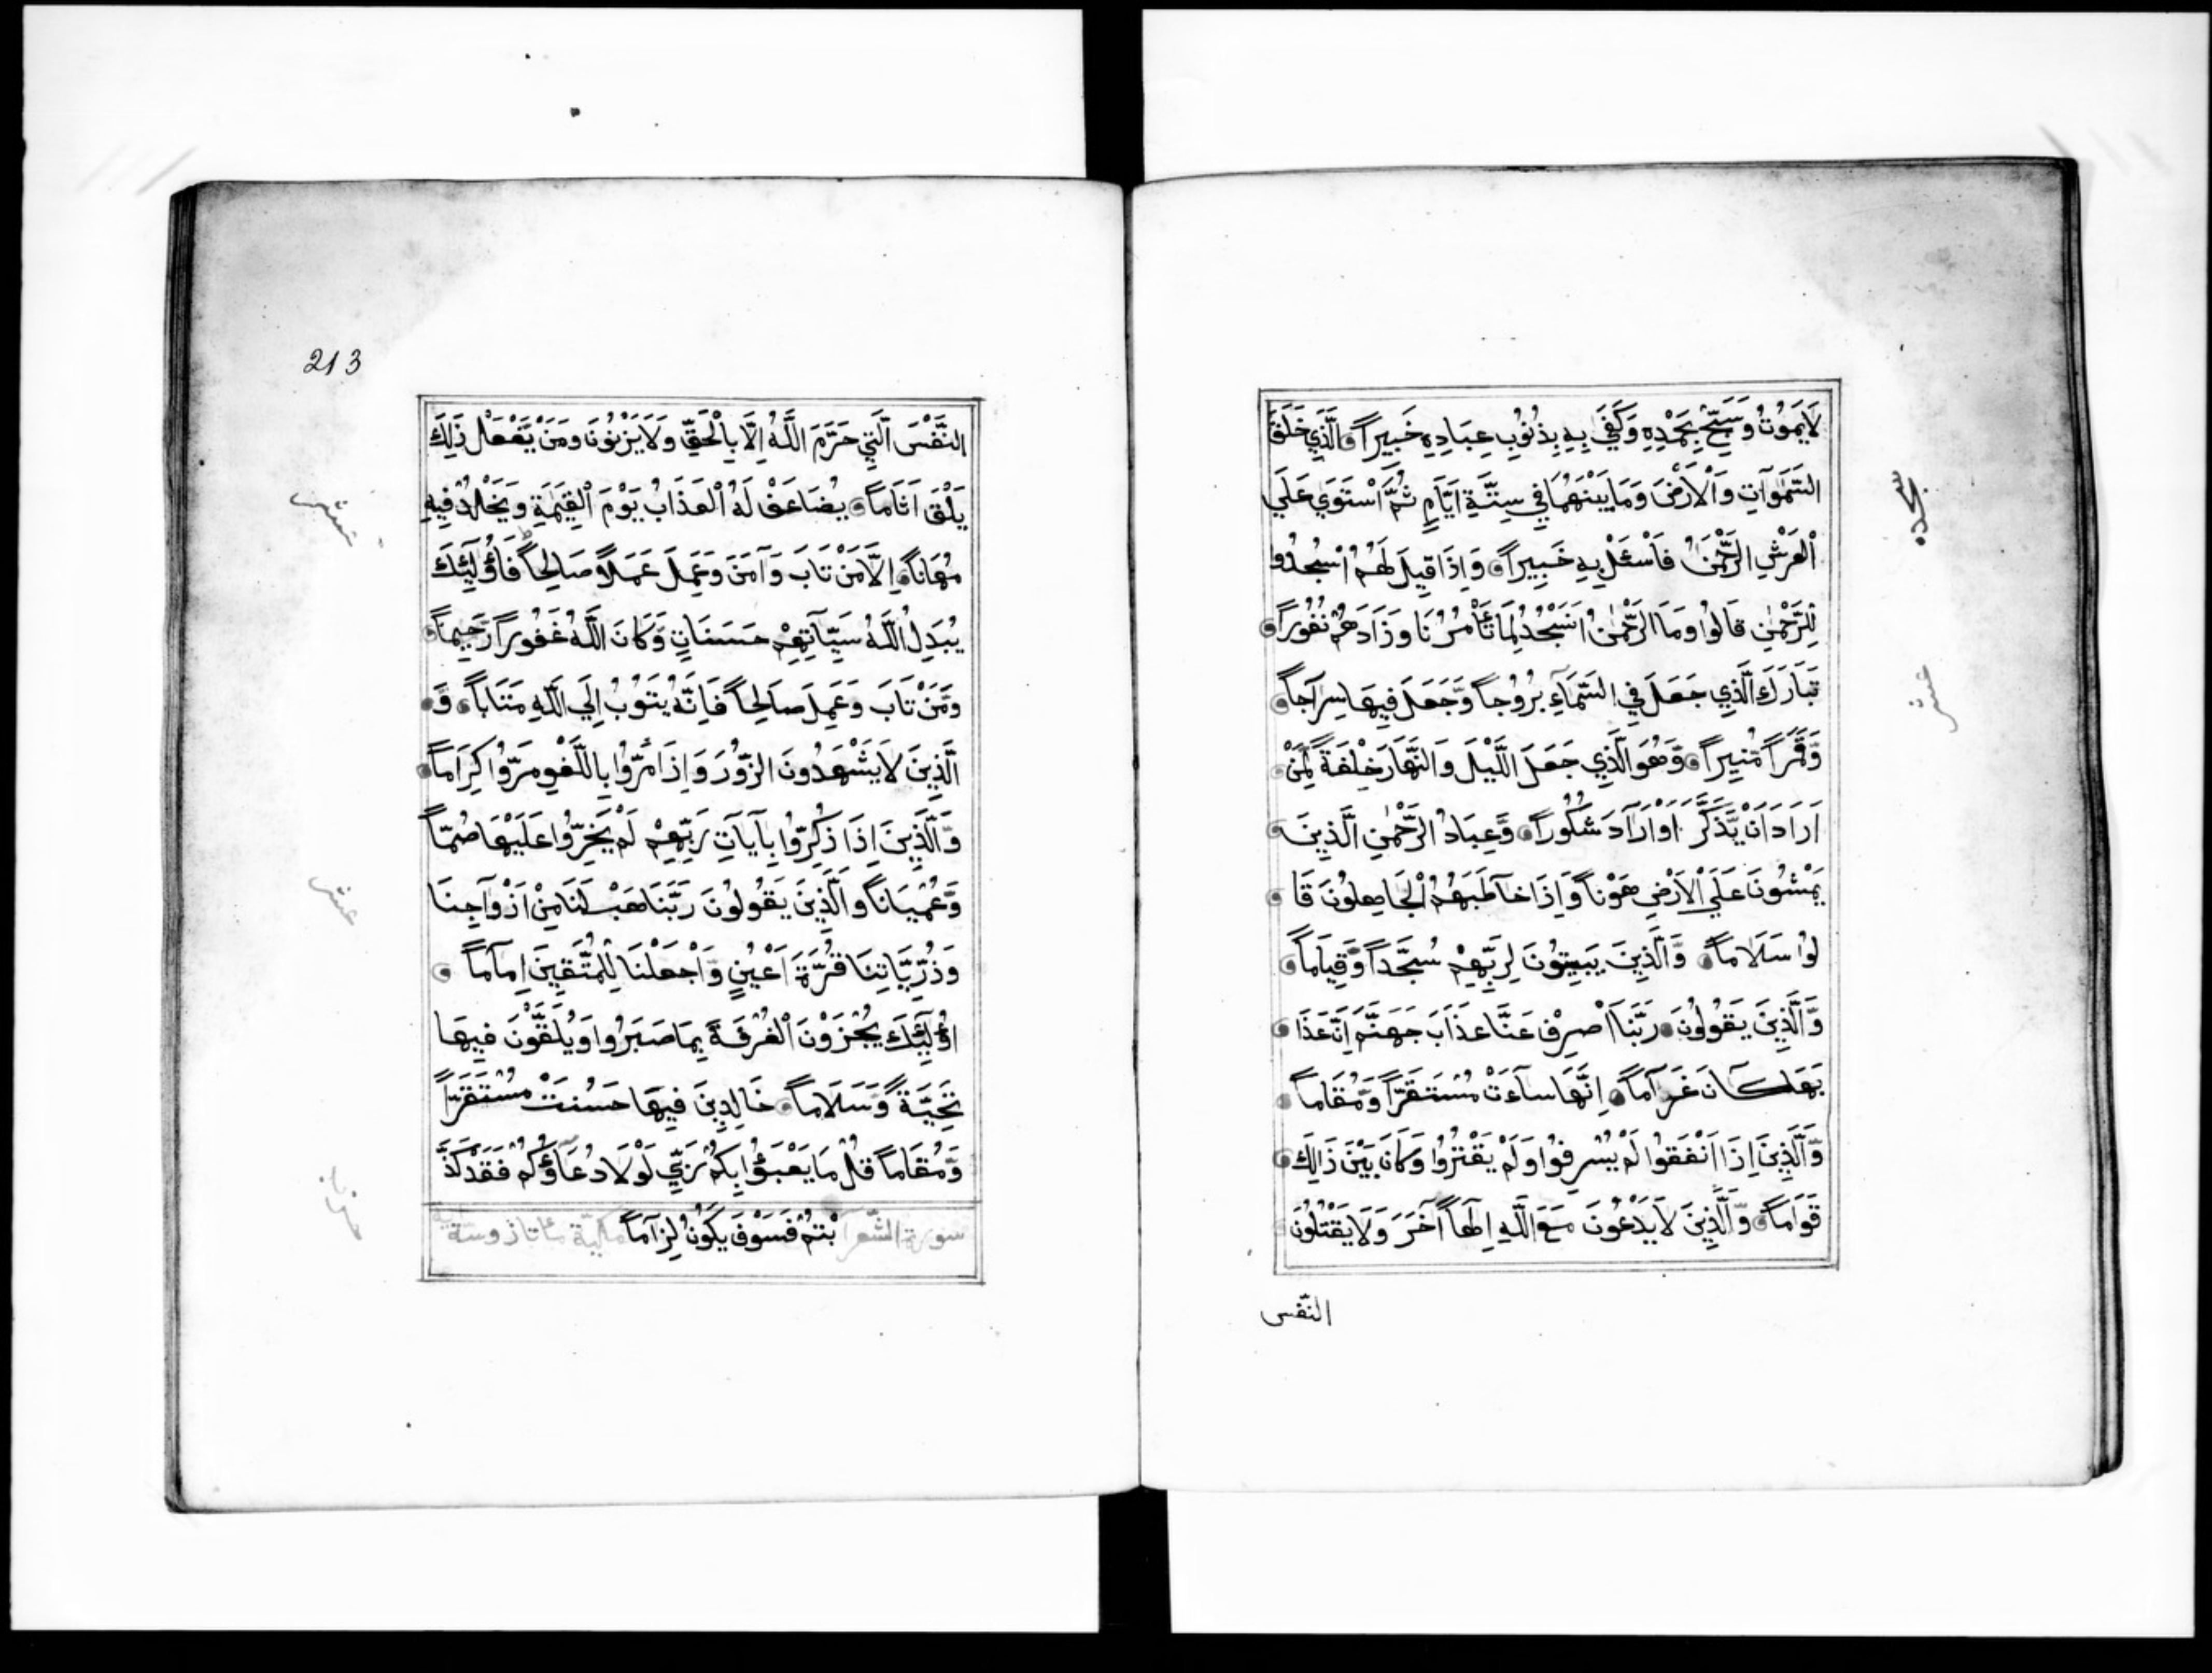 لَا يَمُوتُ وَسَبِّحْ بِحَمْدِهِ وَكَفَىٰ بِهِ بِذُنُوبِ عِبَادِهِ خَبِيراً الَّذِي خَلَقَ
السَّمٰوَاتِ وَالْاَرْضَ وَمَا بَيْنَهُمَا فِي سِتَّةِ اَيَّامٍ ثُمَّ اسْتَوَي عَلَي
الْعَرْشِ الرَّحْمٰنُ فَاسْئَلْ بِهِ خَبِيراً وَاِذَا قِيلَ لَهُمُ اسْجُدُوا
لِلرَّحْمٰنِ قَالُوا وَمَا الرَّحْمٰنُ اَنَسْجُدُ لِمَا تَأْمُرُنَا وَزَادَهُمْ نُفُوراً
تَبَارَكَ الَّذِي جَعَلَ فِي السَّمَآءِ بُرُوجاً وَّجَعَلَ فِيهَا سِرَاجاً
وَّقَمَراً مُّنِيراً وَّهُوَ الَّذِي جَعَلَ اللَّيْلَ وَالنَّهَارَ خِلْفَةً لِّمَنْ
اَرَادَ اَنْ يَّذَّكَّرَ اَوْ اَرَادَ شُكُوراً وَّعِبَادُ الرَّحْمٰنِ الَّذِينَ
يَمْشُونَ عَلَي الْاَرْضِ هَوْناً وَّاِذَا خَاطَبَهُمُ الْجَاهِلُونَ قَا
لُوا سَلَاماً وَّالَّذِينَ يَبِيتُونَ لِرَبِّهِمْ سُجَّداً وَّقِيَاماً
وَّالَّذِينَ يَقُولُونَ رَبَّنَا اصْرِفْ عَنَّا عَذَابَ جَهَنَّمَ اِنَّ عَذَا
بَهَا كَانَ غَرَاماً اِنَّهَا سَآءَتْ مُسْتَقَرّاً وَّمُقَاماً
وَّالَّذِينَ اِذَا اَنْفَقُوا لَمْ يُسْرِفُوا وَلَمْ يَقْتُرُوا وَكَانَ بَيْنَ ذَالِكَ
قَوَاماً وَّالَّذِينَ لَا يَدْعُونَ مَعَ اللَّهِ اِلَهاً آخَرَ وَلَا يَقْتُلُونَ
النّفس
سجده
عشر
213
النَّفْسَ الَّتِي حَرَّمَ اللَّهُ اِلَّا بِالْحَقِّ وَلَا يَزْنُونَ وَمَنْ يَّفْعَلْ ذَلِكَ
يَلْقَ اَثَاماً يُضَاعَفْ لَهُ الْعَذَابُ يَوْمَ الْقِيٰمَةِ وَيَخْلُدْ فِيهِ
مُهَاناً اِلَّا مَنْ تَابَ وَآمَنَ وَعَمِلَ عَمَلاً صَالِحاً فَاُولٰئِكَ
يُبَدِّلُ اللَّهُ سَيِّآتِهِمْ حَسَنَاتٍ وَكَانَ اللَّهُ غَفُوراً رَّحِيماً
وَّمَنْ تَابَ وَعَمِلَ صَالِحاً فَاِنَّهُ يَتُوبُ اِلَي اللَّهِ مَتَاباً وَّ
الَّذِينَ لَا يَشْهَدُونَ الزُّورَ وَاِذَا مَرُّوا بِاللَّغْوِ مَرُّوا كِرَاماً
وَّالَّذِينَ اِذَا ذُكِّرُوا بِآيَاتِ رَبِّهِمْ لَمْ يَخِرُّوا عَلَيْهَا صُمّاً
وَّعُمْيَاناً وَالَّذِينَ يَقُولُونَ رَبَّنَا هَبْ لَنَا مِنْ اَزْوَاجِنَا
وَذُرِّيَّاتِنَا قُرَّةَ اَعْيُنٍ وَّاجْعَلْنَا لِلْمُتَّقِينَ اِمَاماً
اُولٰئِكَ يُجْزَوْنَ الْغُرْفَةَ بِمَا صَبَرُوا وَيُلَقَّوْنَ فِيهَا
تَحِيَّةً وَّسَلَاماً خَالِدِينَ فِيهَا حَسُنَتْ مُسْتَقَرّاً
وَّمُقَاماً قُلْ مَا يَعْبَؤُا بِكُمْ رَبِّي لَوْلَا دُعَاؤُكُمْ فَقَدْ كَذَّ
سورة الشعرا بْتُمْ فَسَوْفَ يَكُونُ لِزَاماً مكية
عشر
عشر